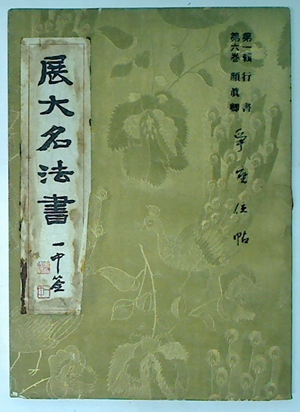 第一輯 行書
第六巻 顔真卿
爭坐位帖
展大名法書
一中